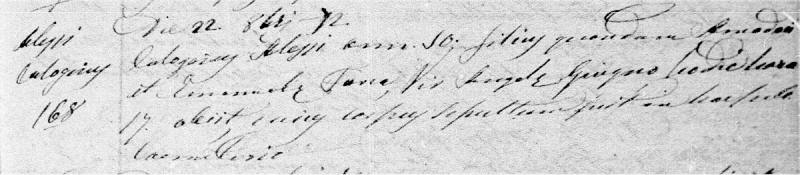 Alessi
Calogerus
168
Die 22 8bri 72
Calogerus Alessi ann. 50: filius quondam Amadei
et Emanuela vir Angela Giugno hodie hora
17. obiit, cuius corpus sepultum fuit in hoc publ
Caemeterio